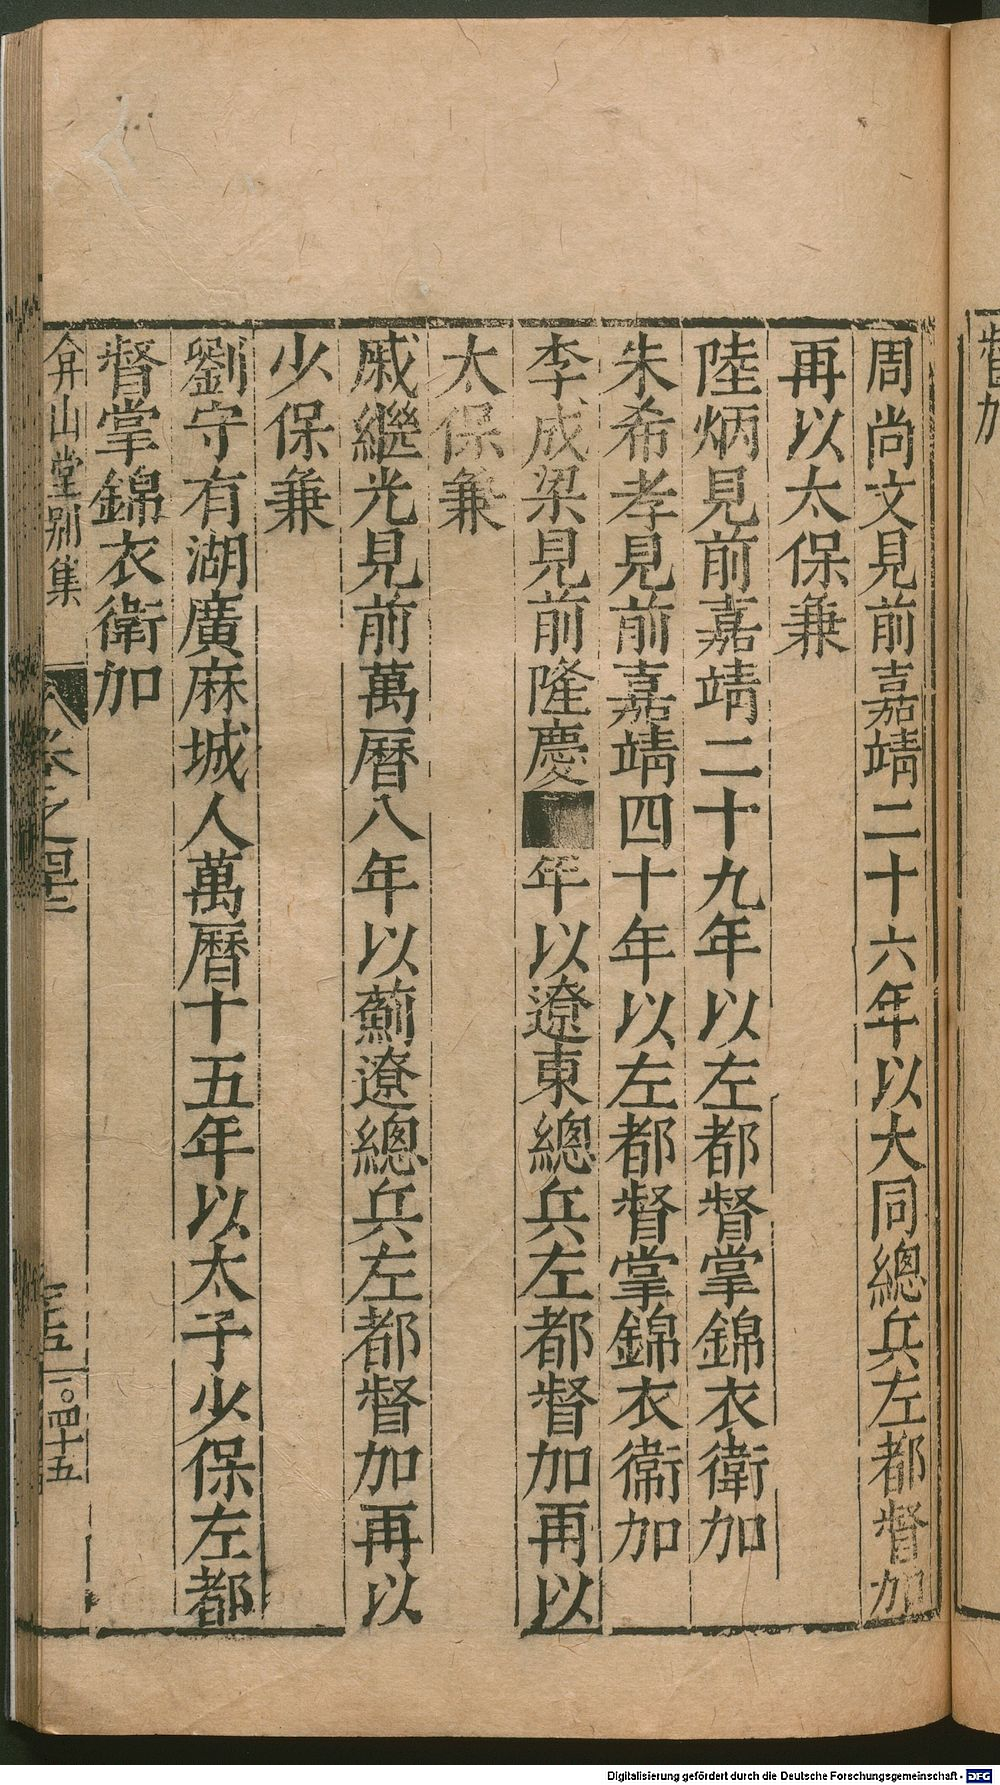 周尚文見前嘉靖二十六年以大同總兵左都督加
再以太保兼
陸炳見前嘉靖二十九年以左都督掌錦衣衛加
朱希孝見前嘉靖四十年以左都督掌錦衣衛加
李成梁見前隆慶 年以遼東總兵左都督加再以
太保兼
戚繼光見前萬曆八年以薊遼總兵左都督加再以
少保兼
劉守有湖廣麻城人萬曆十五年以太子少保左都
督掌錦衣衛加
弇山堂别集
卷之
一〇四十五
督加
Digitalisierung gefördert durch die Deutsche Forschungsgemeinschaft - DFG